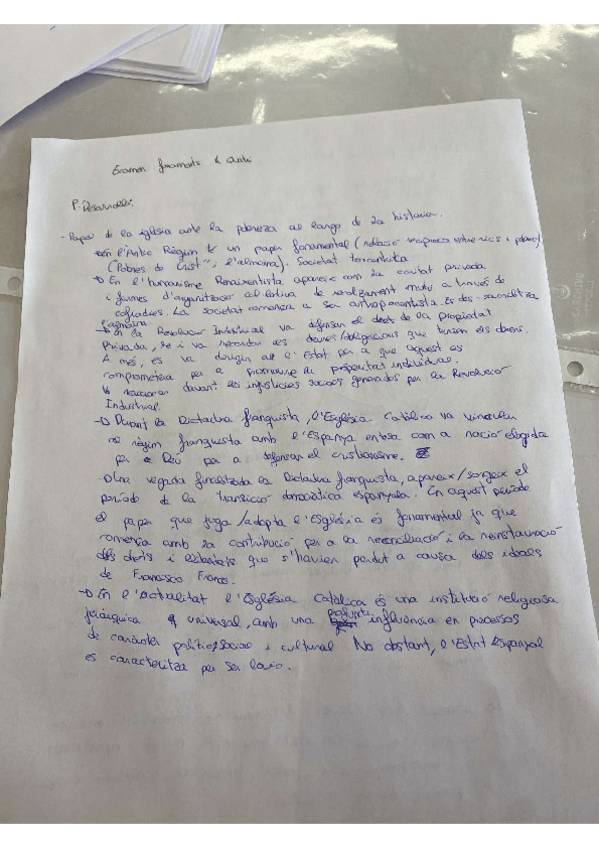 Examen fonaments
P. Desarrollo:
- Paper de la església ante la pobreza al largo de la historia.
En l'Antic Règim té un paper fonamental (relació recíproca entre rics i pobres)
(Pobres de Crist", l'almoina). Societat teocentrista
En l'humanisme Renaixentista apareix com la caritat privada
i formes d'organització col·lectiva de recolzament mutu a través de
cofradies. La societat comença a ser antropocentrista. Es des-sacralitza
l'almoina
En la Revolució Industrial va defensar el dret de la propietat
Privada, i va recordar les deures/obligacions que tenien els obrers.
A més, es va dirigir a l'Estat per a que aquest es
comprometera per a promoure la prosperitat individual.
reaccionar davant les injustícies socials generades per la Revolució
Industrial
Durant la Dictadura franquista, l'Església Catòlica va vincular
al règim franquista amb l'Espanya entesa com a nació elegida
per Déu per a defensar el cristianisme.
Una vegada finalitzada la Dictadura franquista, apareix/sorgeix el
període de la transició democràtica espanyola. En aquest període
el paper que juga/adopta l'Església és fonamental ja que
comença amb la contribució per a la reconciliació i la reinstauració
dels drets i llibertats que s'havien perdut a causa dels ideals
de Francisco Franco.
En l'actualitat l'Església Catòlica és una institució religiosa
jeràrquica universal, amb una influència en processos
de caràcter polític, social i cultural. No obstant, l'Estat Espanyol
es caracteritza per ser laic.